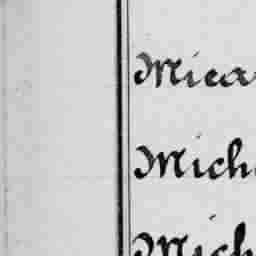 Mica
Mich
Mich